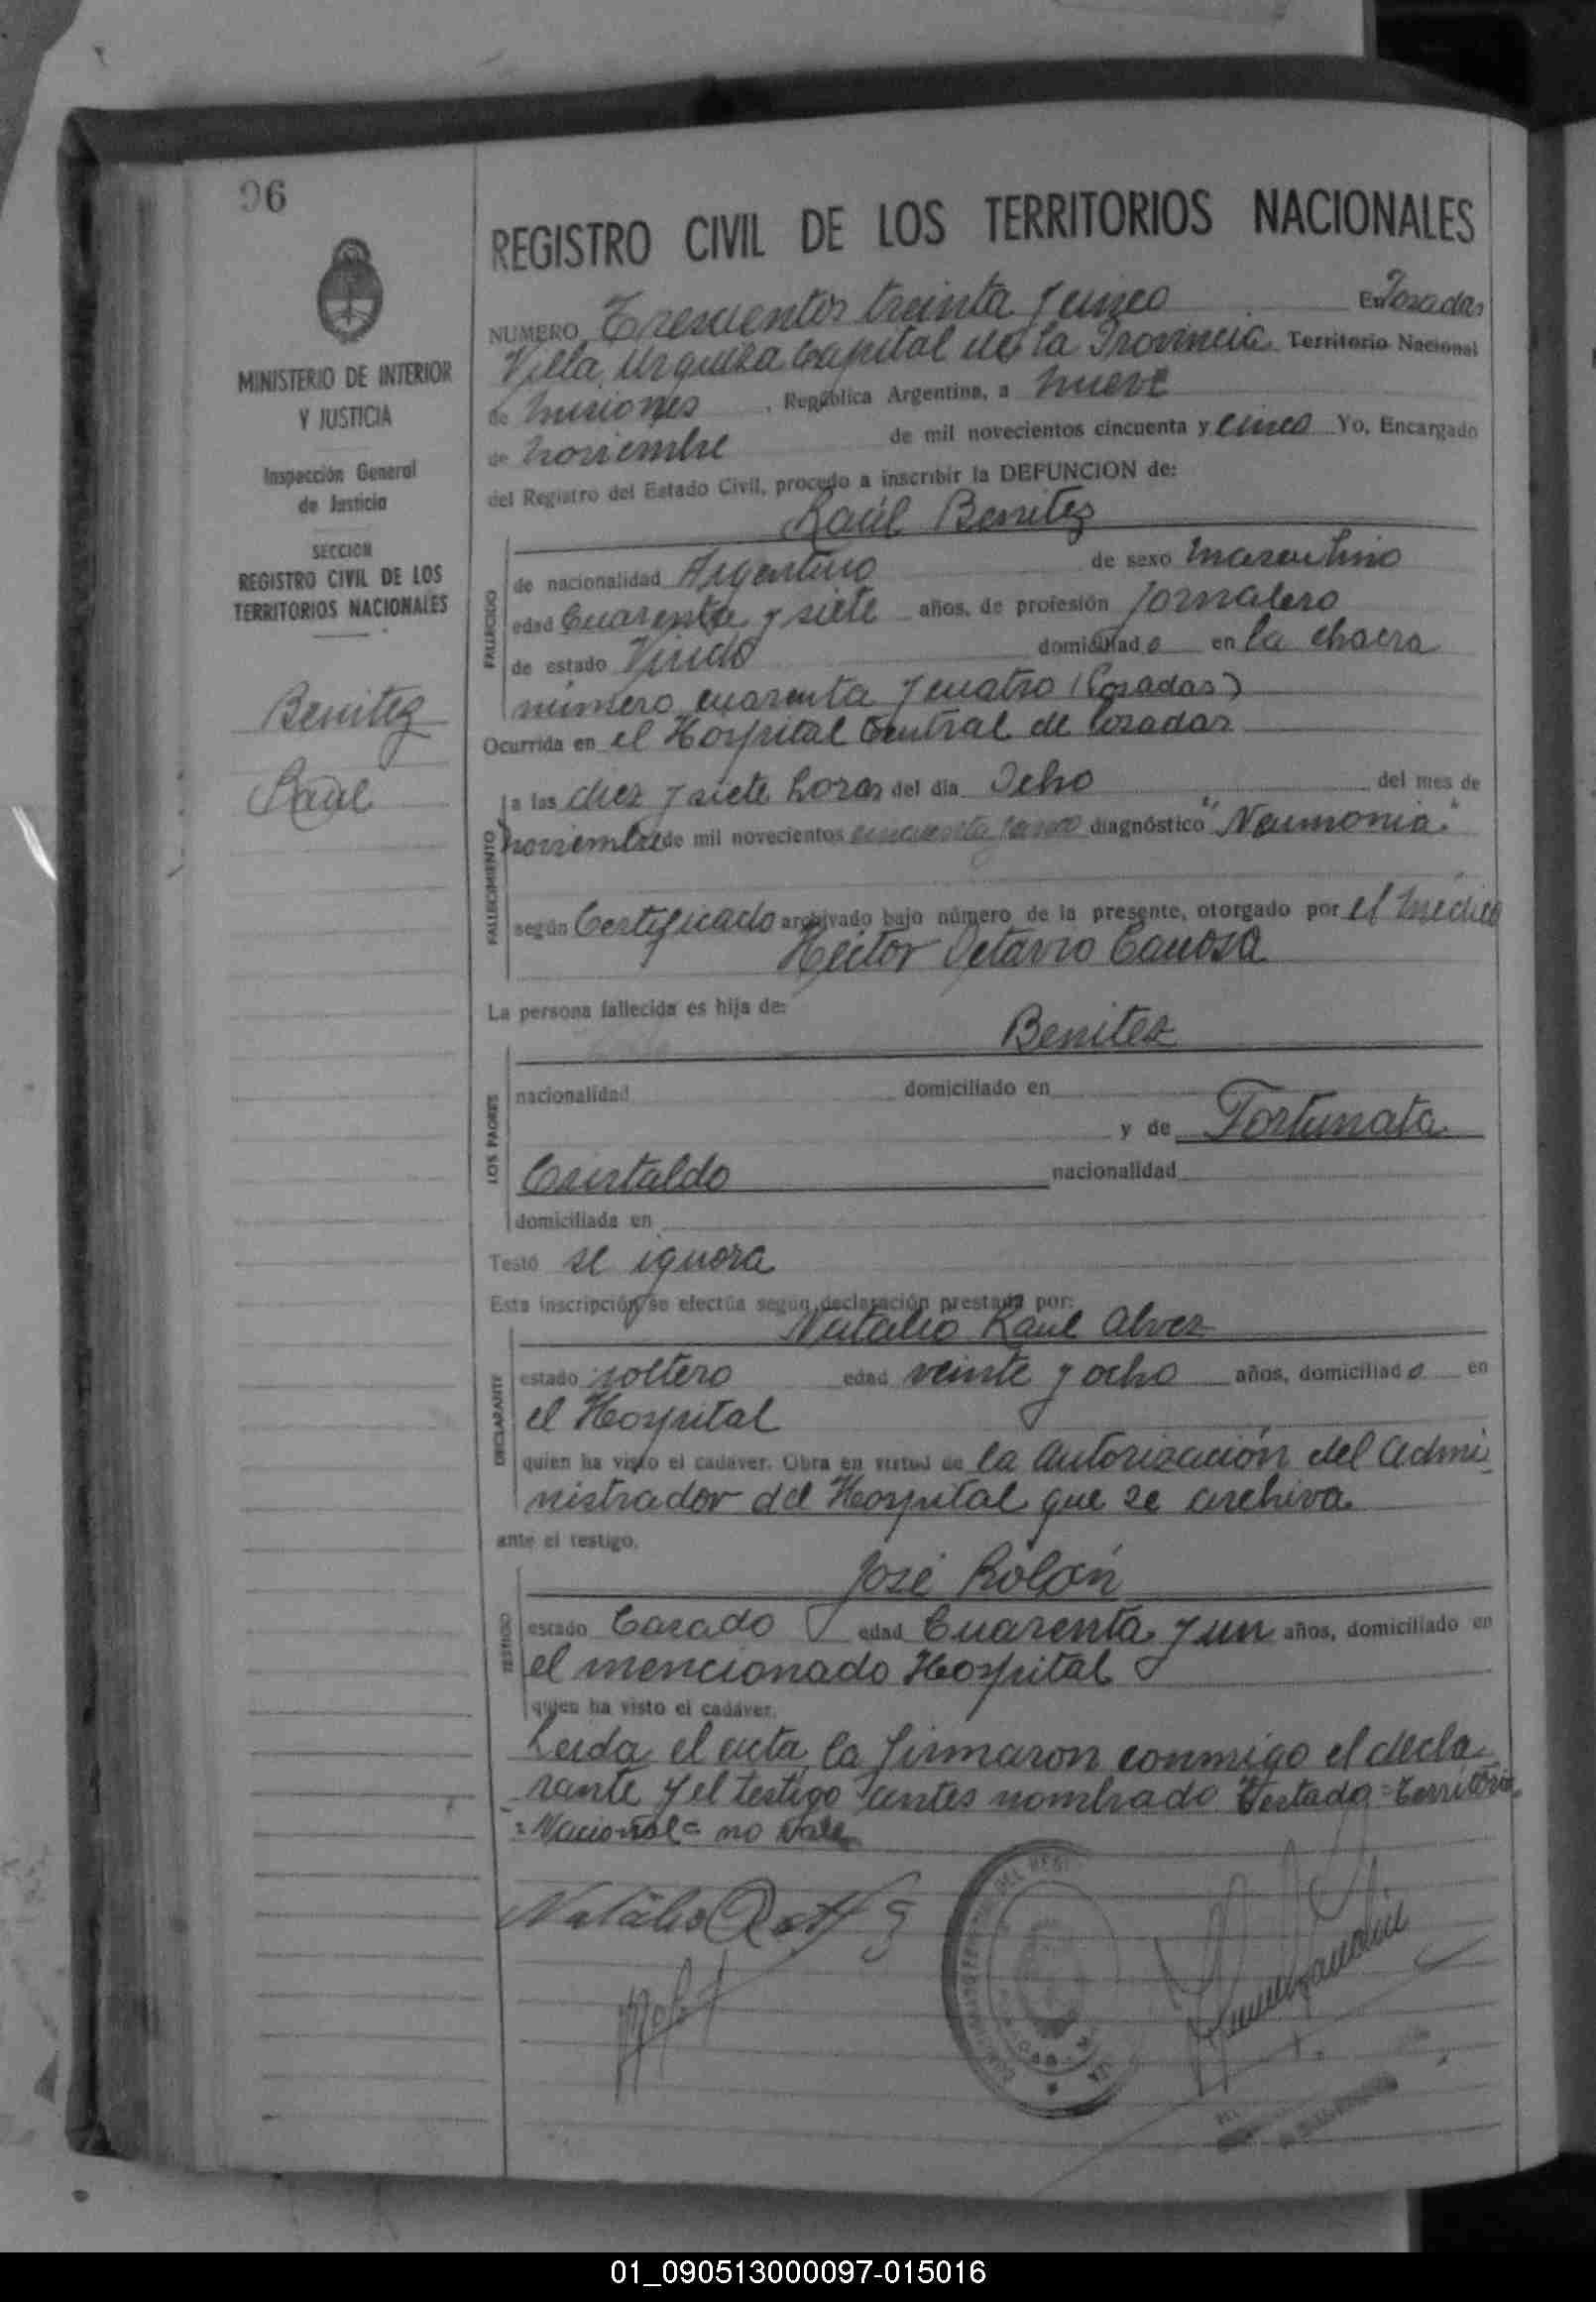 96
MINISTERIO DE INTERIOR
Y JUSTICIA
Inspección General
de Justicia
SECCION
REGISTRO CIVIL DE LOS
TERRITORIOS NACIONALES
Benitez
Raúl
REGISTRO CIVIL DE LOS TERRITORIOS NACIONALES
NUMERO Trescientos treinta y cinco En Posadas
Villa Urquiza Capital de la Provincia Territorio Nacional
de Misiones, República Argentina, a nueve
de noviembre de mil novecientos cincuenta y cinco Yo, Encargado
del Registro del Estado Civil, procedo a inscribir la DEFUNCION de:
Raúl Benitez
FALLECIDO
de nacionalidad Argentino de sexo masculino
edad Cuarenta y siete años, de profesión Jornalero
de estado Viudo domiciliado en la chacra
número cuarenta y cuatro (Posadas)
Ocurrida en el Hospital Central de Posadas
FALLECIMIENTO
a las diez y siete horas del día Ocho del mes de
noviembre de mil novecientos cincuenta y cinco diagnóstico "Neumonia"
según Certificado archivado bajo número de la presente, otorgado por el médico
Héctor Octavio Canosa
La persona fallecida es hija de:
LOS PADRES
Benitez
nacionalidad domiciliado en
y de Fortunata
Cristaldo nacionalidad
domiciliada en
Testó se ignora
Esta inscripción se efectúa según declaración prestada por:
DECLARANTE
Natalio Raul Alvez
estado soltero edad veinte y ocho años, domiciliado en
el Hospital
quien ha visto el cadáver. Obra en virtud de la autorización del Admi
nistrador del Hospital que se archiva
ante el testigo.
TESTIGO
José Rolón
estado Casado edad Cuarenta y un años, domiciliado en
el mencionado Hospital
quien ha visto el cadáver.
Leida el acta, la firmaron conmigo el decla
rante y el testigo antes nombrado Testado=Territorio
=Nacional= no vale
Natalio
01_090513000097-015016